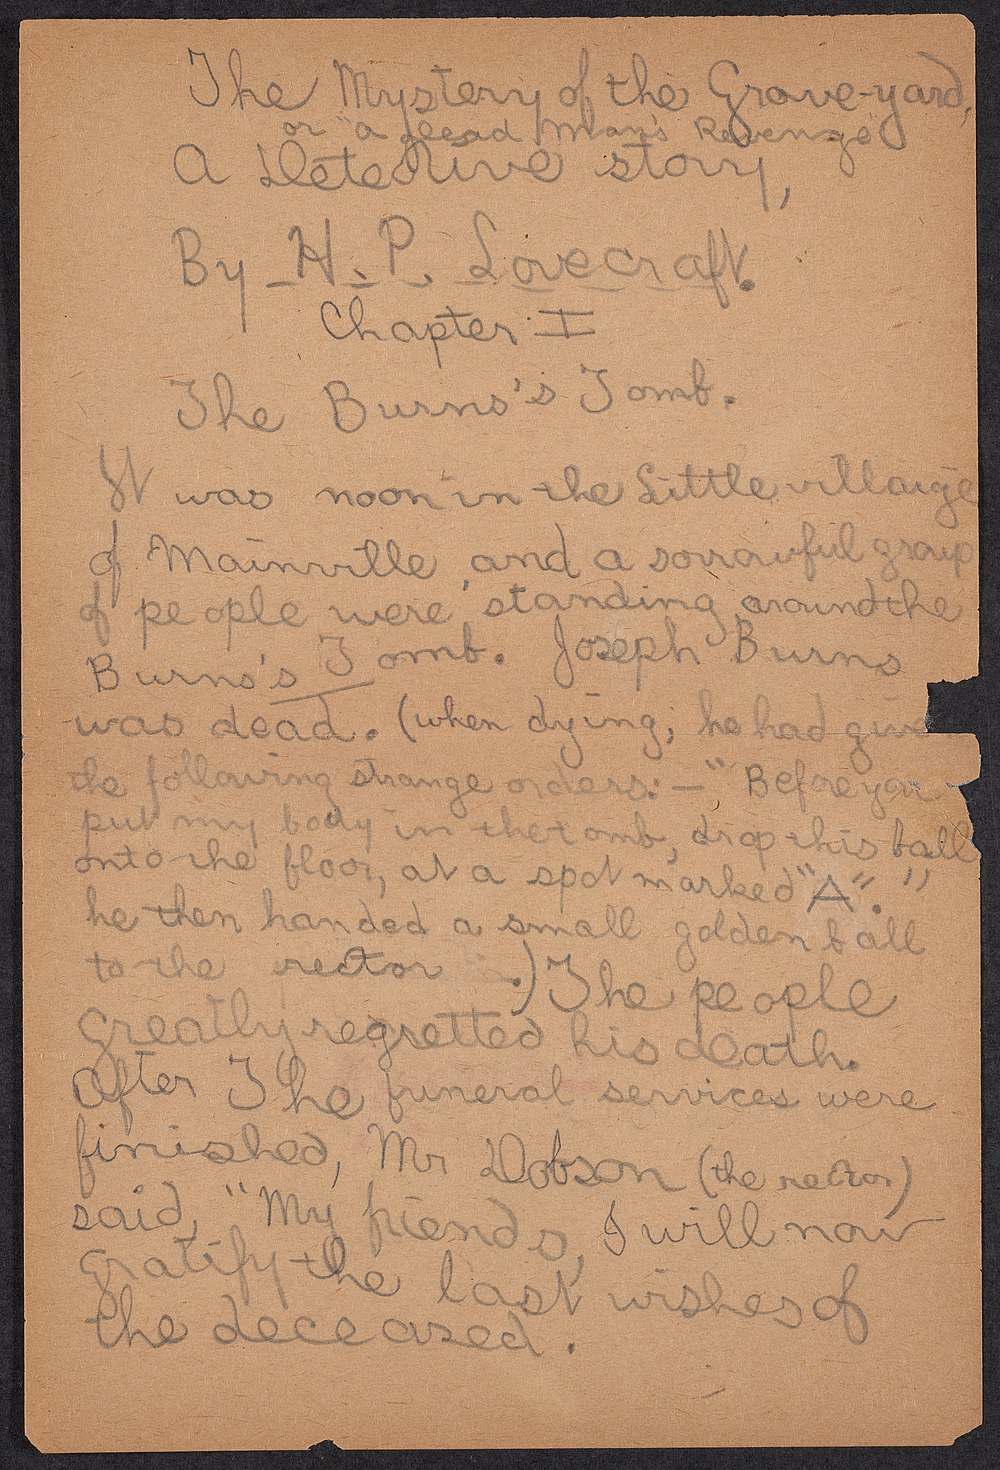 The Mystery of the Grave-yard,
or "a dead Man's Revenge"
A Detective story,
By H. P. Lovecraft.
Chapter I
The Burns's Tomb.
It was noon in the Little villaige
of Mainville, and a sorrowful group
of people were standing around the
Burns's Tomb. Joseph Burns
was dead. (when dying, he had give
the following strange orders:—"Before you
put my body in the tomb, drop this ball
onto the floor, at a spot marked "A"."
he then handed a small golden ball
to the rector.) The people
greatly regretted his death.
After The funeral services were
finished, Mr Dobson (the rector)
said, "My friends, I will now
gratify the last wishes of
the deceased.